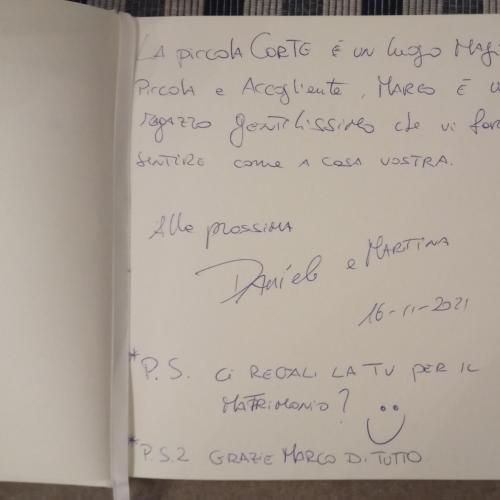 LA piccola CORTE È UN luogo MAGI
Piccola e Accogliente, MARCO È U
ragazzo gentilissimo che vi far
SENTIRE come A CASA VOSTRA.
Alla prossima
Daniele e MARTINA
16-11-2021
*P.S. Ci REGALI LA TV PER IL
MATRIMONIO?
*P.S.2 GRAZIE MARCO DI TUTTO